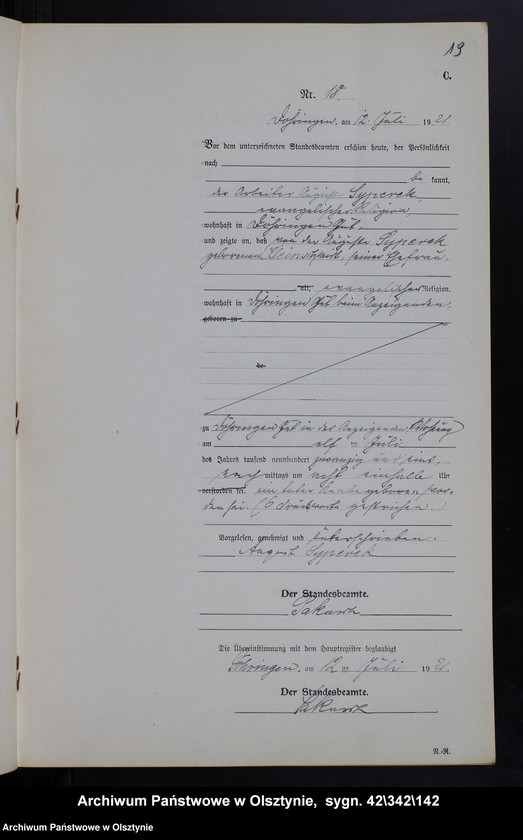 19
C.
Nr. 18.
Döhringen, am 12. Juli 1921
Vor dem unterzeichneten Standesbeamten erschien heute, der Persönlichkeit
nach
be kannt,
der Arbeiter August Syperek,
evangelischer Religion,
wohnhaft in Döhringen Gut,
und zeigte an, daß von der Auguste Syperek
geborenen Kleinschmidt, seiner Ehefrau,
alt, evangelischer Religion,
wohnhaft in Döhringen Gut beim Anzeigenden,
geboren zu
de
zu Döhringen Gut in des Anzeigenden Wohnung
am elf ten Juli
des Jahres tausend neunhundert zwanzig und eins,
nach mittags um acht einhalb Uhr
verstorben sei. ein toter Knabe geboren wor-
den sei. (6 Druckworte gestrichen.)
Vorgelesen, genehmigt und unterschrieben.
August Syperek
Der Standesbeamte.
Die Übereinstimmung mit dem Hauptregister beglaubigt
Döhringen, am 12 ten Juli 1921
Der Standesbeamte.
N.-R.
Archiwum Państwowe w Olsztynie, sygn. 42\342\142
Archiwum Państwowe w Olsztynie